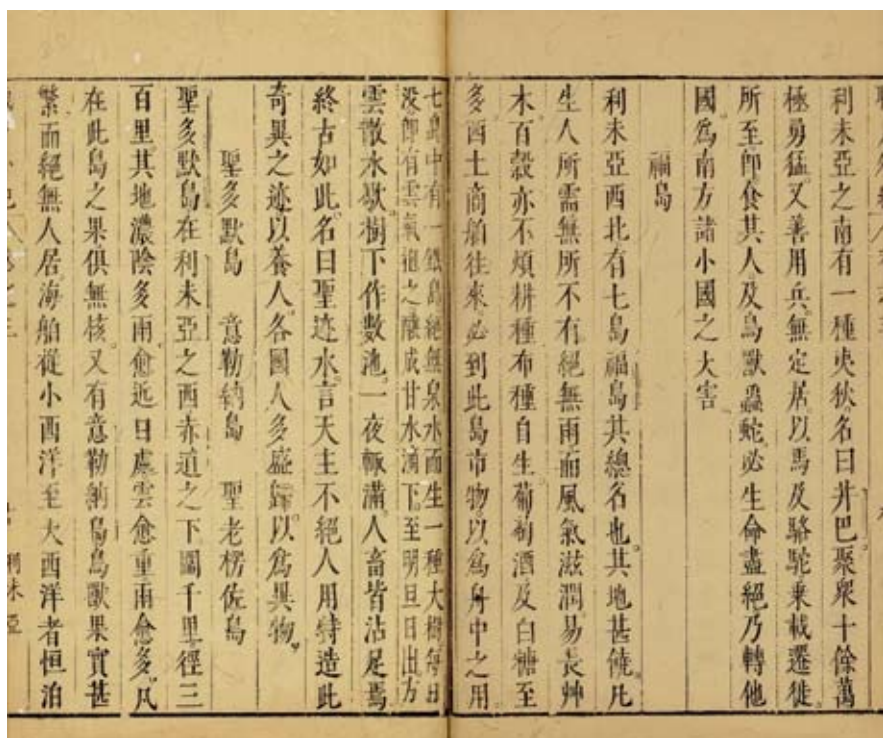 利未亞之南有一種夷狄名曰井巴聚衆十餘萬
極勇猛又善用兵無定居以馬及駱駝乗載遷徙
所至即食其人及鳥獸蟲蛇必生命盡絕乃轉他
國爲南方諸小國之大害
福島
利未亞西北有七島福島其總名也其地甚饒凡
生人所需無所不有絕無雨而風氣滋潤易長艸
木百穀亦不煩耕種布種自生葡萄酒及白糖至
多西土商舶往來必到此島市物以爲舟中之用
七島中有一鐵島絕無泉水而生一種大樹每日
没即有雲氣抱之釀成甘水滴下至明旦日出方
雲散水歇樹下作數池一夜輙滿人畜皆沾足焉
終古如此名曰聖迹水言天主不絕人用特造此
奇異之迹以養人各國人多盛歸以爲異物
聖多默島 意勒納島 聖老楞佐島
聖多默島在利未亞之西赤道之下圍千里徑三
百里其地濃陰多雨愈近日處雲愈重雨愈多凡
在此島之果俱無核又有意勒納島鳥獸果實甚
繁而絕無人居海舶從小西洋至大西洋者恒泊
利未亞